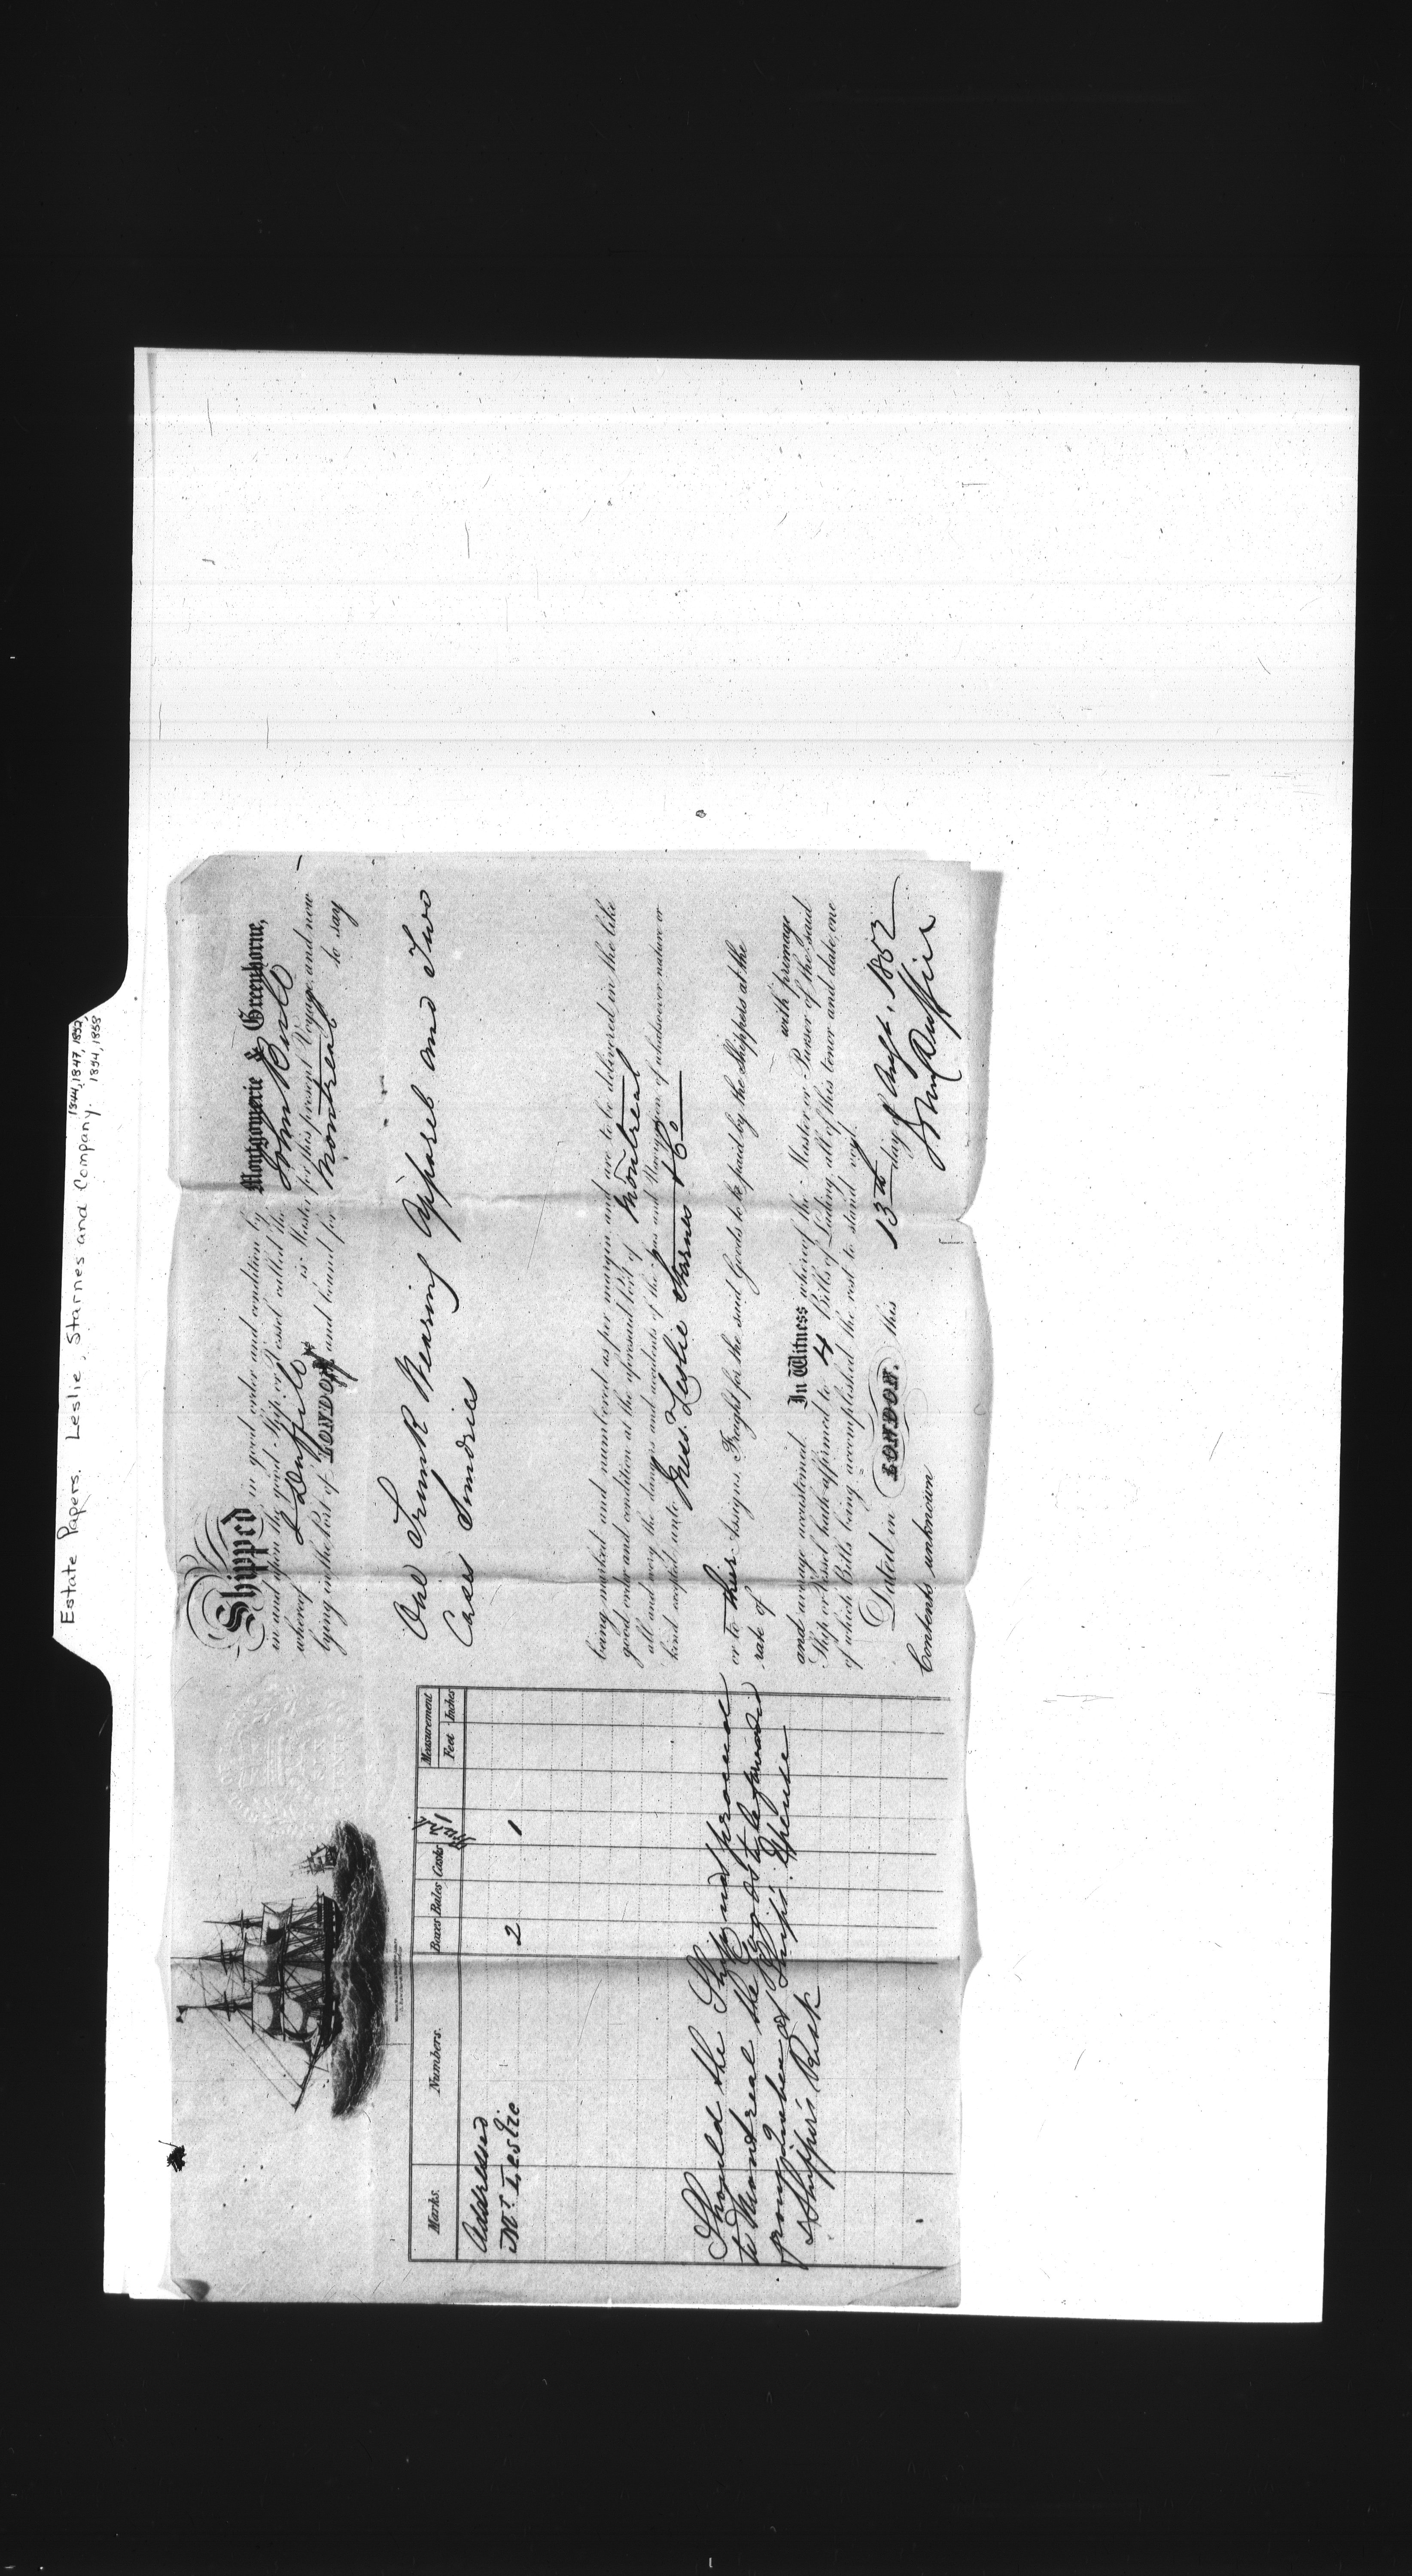 Estate Papers. Leslie, Starnes and Company. 1844, 1847, 1852,
1854, 1858
Shipped in good order and condition by Montgomerie & Greenhorne,
in and upon the good Ship or Vessel called the John Bull
whereof J Duffill is Master for this present Voyage, and now
lying in the Port of LONDON, and bound for Montreal to say
One Trunk Wearing Apparel and Two
Cases Sundries
being marked and numbered as per margin, and are to be delivered, in the like
good order and condition at the aforesaid Port of Montreal
all and every the dangers and accidents of the Seas and Navigation of whatsoever nature or
kind excepted, unto Mess. Leslie Starnes & Co
or to their Assigns, Freight for the said Goods to be paid by the Shippers at the
rate of with primage
and average accustomed. In Witness whereof the Master or Purser of the said
Ship or Vessel hath affirmed to 4 Bills of Lading all of this tenor and date, one
of which Bills being accomplished the rest to stand void.
Dated in LONDON. this 13th day of Augt. 1852
Contents unknown
Marks. Numbers. Boxes Bales Casks Measurement
Feet Inches
Addressed
Mr Leslie 2 1
Should the Ship not proceed
to Montreal the Goods to be forwarded
from Quebec at Ship's Expense
& Shipper's Risk